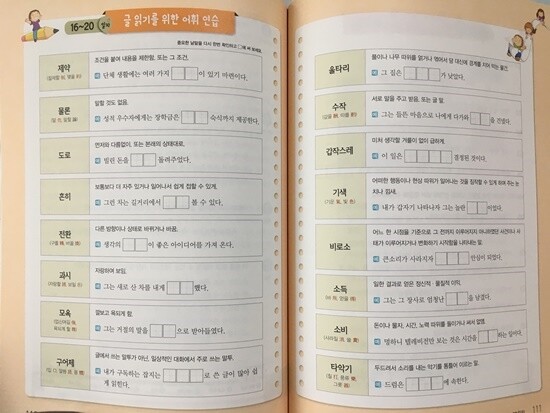 16~20 일차
글 읽기를 위한 어휘 연습
중요한 낱말을 다시 한번 확인하고 □에 써 보세요.
제약
조건을 붙여 내용을 제한함. 또는 그 조건.
예 단체 생활에는 여러 가지 □□이 있기 마련이다.
물론
말할 것도 없음.
예 성적 우수자에게는 장학금은 □□ 숙식까지 제공한다.
도로
먼저와 다름없이. 또는 본래의 상태대로.
예 빌린 돈을 □□ 돌려주었다.
흔히
보통보다 더 자주 있거나 일어나서 쉽게 접할 수 있게.
예 그런 차는 길거리에서 □□ 볼 수 있다.
전환
다른 방향이나 상태로 바뀌거나 바꿈.
예 생각의 □□이 좋은 아이디어를 가져 온다.
과시
자랑하여 보임.
예 그는 새로 산 차를 내게 □□했다.
모욕
깔보고 욕되게 함.
예 그는 거절의 말을 □□으로 받아들였다.
구어체
글에서 쓰는 말투가 아닌, 일상적인 대화에서 주로 쓰는 말투.
예 내가 구독하는 잡지는 □□□로 쓴 글이 많아 쉽
게 읽힌다.
울타리
풀이나 나무 따위를 얽거나 엮어서 담 대신에 경계를 지어 막는 물건.
예 그 집은 □□□가 낮았다.
수작
서로 말을 주고 받음. 또는 그 말.
예 그는 들뜬 마음으로 나에게 다가와 □□을 건넸다.
갑작스레
미처 생각할 겨를이 없이 급하게.
예 이 일은 □□□□ 결정된 것이다.
기색
어떠한 행동이나 현상 따위가 일어나는 것을 짐작할 수 있게 하여 주는 눈
치나 낌새.
예 내가 갑자기 나타나자 그는 놀란 □□이었다.
비로소
어느 한 시점을 기준으로 그 전까지 이루어지지 아니하였던 사건이나 사
태가 이루어지거나 변화하기 시작함을 나타내는 말.
예 큰소리가 사라지자 □□□ 안심이 되었다.
소득
일한 결과로 얻은 정신적·물질적 이익.
예 그는 그 장사로 엄청난 □□을 남겼다.
소비
돈이나 물자, 시간, 노력 따위를 들이거나 써서 없앰.
예 멍하니 텔레비전만 보는 것은 시간을 □□하는 일이다.
타악기
두드려서 소리를 내는 악기를 통틀어 이르는 말.
예 드럼은 □□□에 속한다.
111